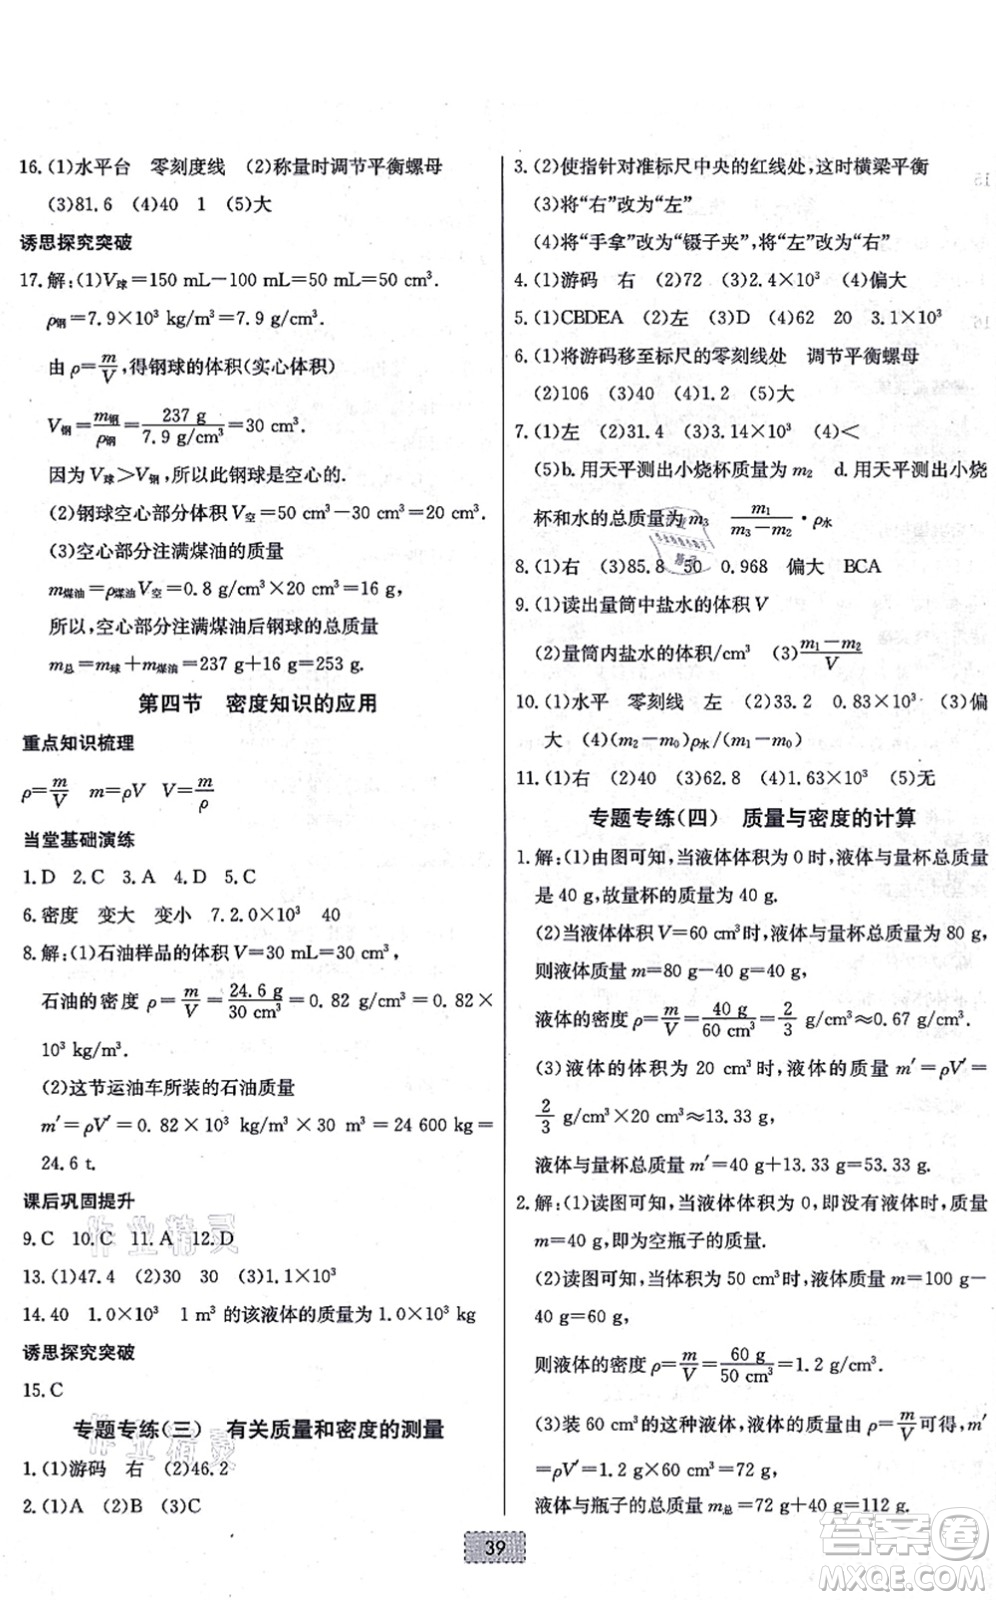 16.(1)水平台　零刻度线　(2)称量时调节平衡螺母
(3)81.6　(4)40　1　(5)大
诱思探究突破
17.解:(1)V球=150 mL-100 mL=50 mL=50 cm³.
ρ钢=7.9×10³ kg/m³=7.9 g/cm³.
由 ρ=m/V,得钢球的体积(实心体积)
V钢=m钢/ρ钢=237 g/7.9 g/cm³=30 cm³.
因为 V球>V钢,所以此钢球是空心的.
(2)钢球空心部分体积 V空=50 cm³-30 cm³=20 cm³.
(3)空心部分注满煤油的质量
m煤油=ρ煤油V空=0.8 g/cm³×20 cm³=16 g,
所以,空心部分注满煤油后钢球的总质量
m总=m球+m煤油=237 g+16 g=253 g.
第四节　密度知识的应用
重点知识梳理
ρ=m/V　m=ρV　V=m/ρ
当堂基础演练
1.D　2.C　3.A　4.D　5.C
6.密度　变大　变小　7.2.0×10³　40
8.解:(1)石油样品的体积 V=30 mL=30 cm³,
石油的密度 ρ=m/V=24.6 g/30 cm³=0.82 g/cm³=0.82×
10³ kg/m³.
(2)这节运油车所装的石油质量
m′=ρV′=0.82×10³ kg/m³×30 m³=24 600 kg=
24.6 t.
课后巩固提升
9.C　10.C　11.A　12.D
13.(1)47.4　(2)30　30　(3)1.1×10³
14.40　1.0×10³　1 m³ 的该液体的质量为 1.0×10³ kg
诱思探究突破
15.C
专题专练(三)　有关质量和密度的测量
1.(1)游码　右　(2)46.2
2.(1)A　(2)B　(3)C
3.(2)使指针对准标尺中央的红线处,这时横梁平衡
(3)将“右”改为“左”
(4)将“手拿”改为“镊子夹”,将“左”改为“右”
4.(1)游码　右　(2)72　(3)2.4×10³　(4)偏大
5.(1)CBDEA　(2)左　(3)D　(4)62　20　3.1×10³
6.(1)将游码移至标尺的零刻线处　调节平衡螺母
(2)106　(3)40　(4)1.2　(5)大
7.(1)左　(2)31.4　(3)3.14×10³　(4)<
(5)b.用天平测出小烧杯质量为 m₂　d.用天平测出小烧
杯和水的总质量为 m₃　m₁/(m₃-m₂)·ρ水
8.(1)右　(3)85.8　50　0.968　偏大　BCA
9.(1)读出量筒中盐水的体积 V
(2)量筒内盐水的体积/cm³　(3)(m₁-m₂)/V
10.(1)水平　零刻线　左　(2)33.2　0.83×10³　(3)偏
大　(4)(m₂-m₀)ρ水/(m₁-m₀)
11.(1)右　(2)40　(3)62.8　(4)1.63×10³　(5)无
专题专练(四)　质量与密度的计算
1.解:(1)由图可知,当液体体积为 0 时,液体与量杯总质量
是 40 g,故量杯的质量为 40 g.
(2)当液体体积 V=60 cm³时,液体与量杯总质量为 80 g,
则液体质量 m=80 g-40 g=40 g,
液体的密度 ρ=m/V=40 g/60 cm³=2/3 g/cm³≈0.67 g/cm³.
(3)液体的体积为 20 cm³ 时,液体的质量 m′=ρV′=
2/3 g/cm³×20 cm³=13.33 g,
液体与量杯总质量 m′=40 g+13.33 g=53.33 g.
2.解:(1)读图可知,当液体体积为 0,即没有液体时,质量
m=40 g,即为空瓶子的质量.
(2)读图可知,当体积为 50 cm³时,液体质量 m=100 g-
40 g=60 g,
则液体的密度 ρ=m/V=60 g/50 cm³=1.2 g/cm³.
(3)装 60 cm³的这种液体,液体质量由 ρ=m/V可得,m′
=ρV′=1.2 g/cm³×60 cm³=72 g,
液体与瓶子的总质量 m总=72 g+40 g=112 g.
39
作业精灵
作业精灵
答案圈
MXQE.COM